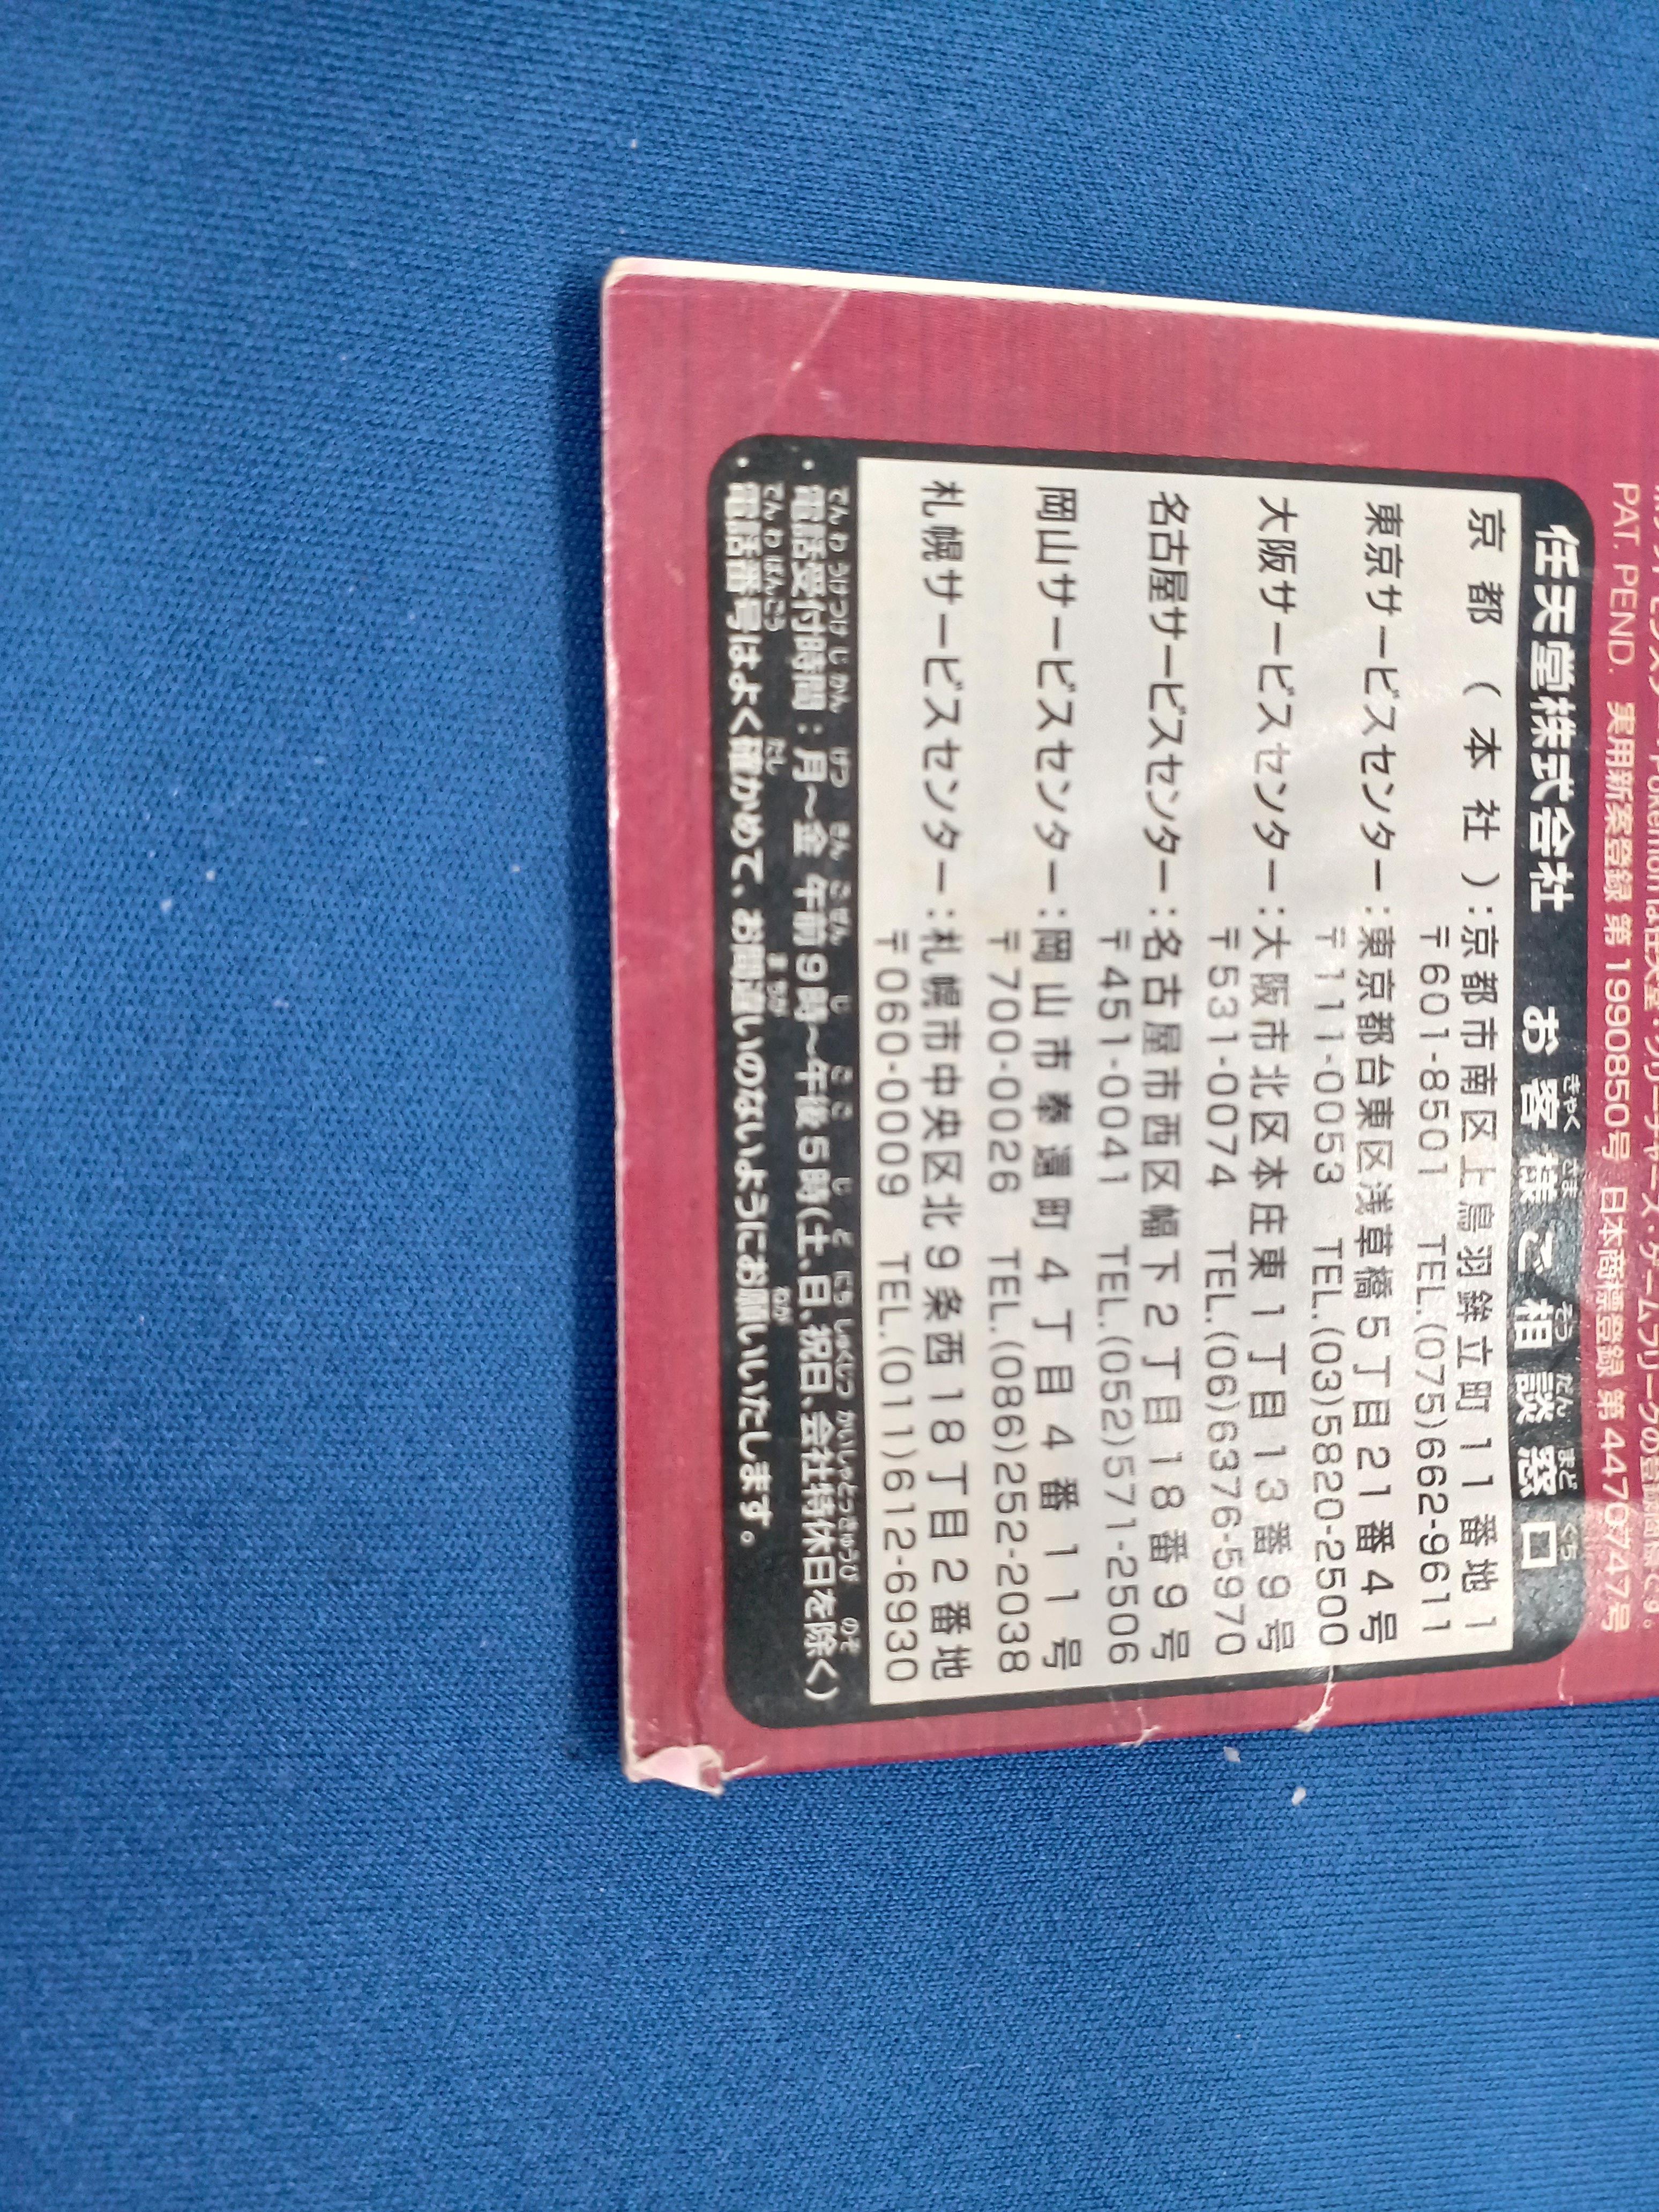 Pokémonは任天堂・クリーチャーズ・ゲームフリークの登録商標です。
PAT. PEND. 実用新案登録 第1990850号 日本商標登録 第4470747号
任天堂株式会社 お客様ご相談窓口
きゃく さま そう だん まど ぐち
京都(本社):京都市南区上鳥羽鉾立町11番地1
〒601-8501 TEL.(075)662-9611
東京サービスセンター:東京都台東区浅草橋5丁目21番4号
〒111-0053 TEL.(03)5820-2500
大阪サービスセンター:大阪市北区本庄東1丁目13番9号
〒531-0074 TEL.(06)6376-5970
名古屋サービスセンター:名古屋市西区幅下2丁目18番9号
〒451-0041 TEL.(052)571-2506
岡山サービスセンター:岡山市奉還町4丁目4番11号
〒700-0026 TEL.(086)252-2038
札幌サービスセンター:札幌市中央区北9条西18丁目2番地
〒060-0009 TEL.(011)612-6930
でんわ うけつけ じかん げつ きん ごぜん じ ごご じ ど にち しゅくじつ かいしゃとっきゅうび のぞ
・電話受付時間:月～金 午前9時～午後5時(土、日、祝日、会社特休日を除く)
でんわ ばんごう たし ま ちが ねが
・電話番号はよく確かめて、お間違いのないようにお願いいたします。